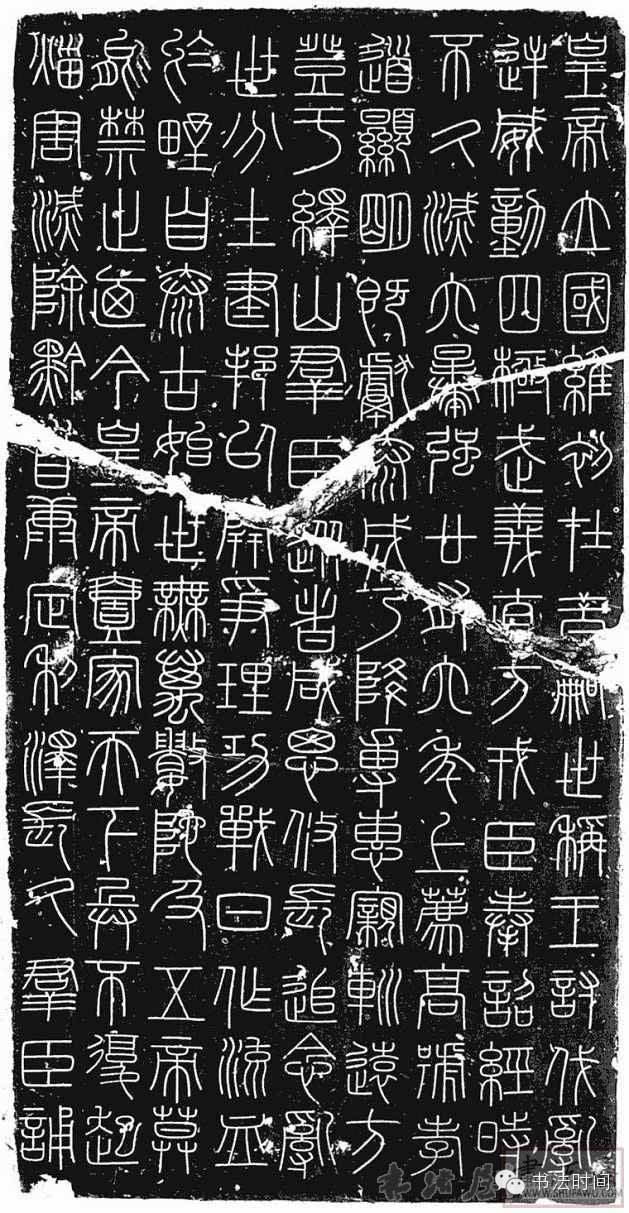 皇帝立國維初在昔嗣世稱王討伐亂
逆威動四極武義直方戎臣奉詔經時
不久滅六暴強廿有六年上薦高號孝
道顯明既獻泰成乃降專惠親巡遠方
登于繹山羣臣從者咸思攸長追念亂
世分土建邦以開爭理功戰日作流血
於野自泰古始世無萬數陀及五帝莫
能禁止迺今皇帝壹家天下兵不復起
災害滅除黔首康定利澤長久羣臣誦
书法时间
WWW.SHUFAWU.COM